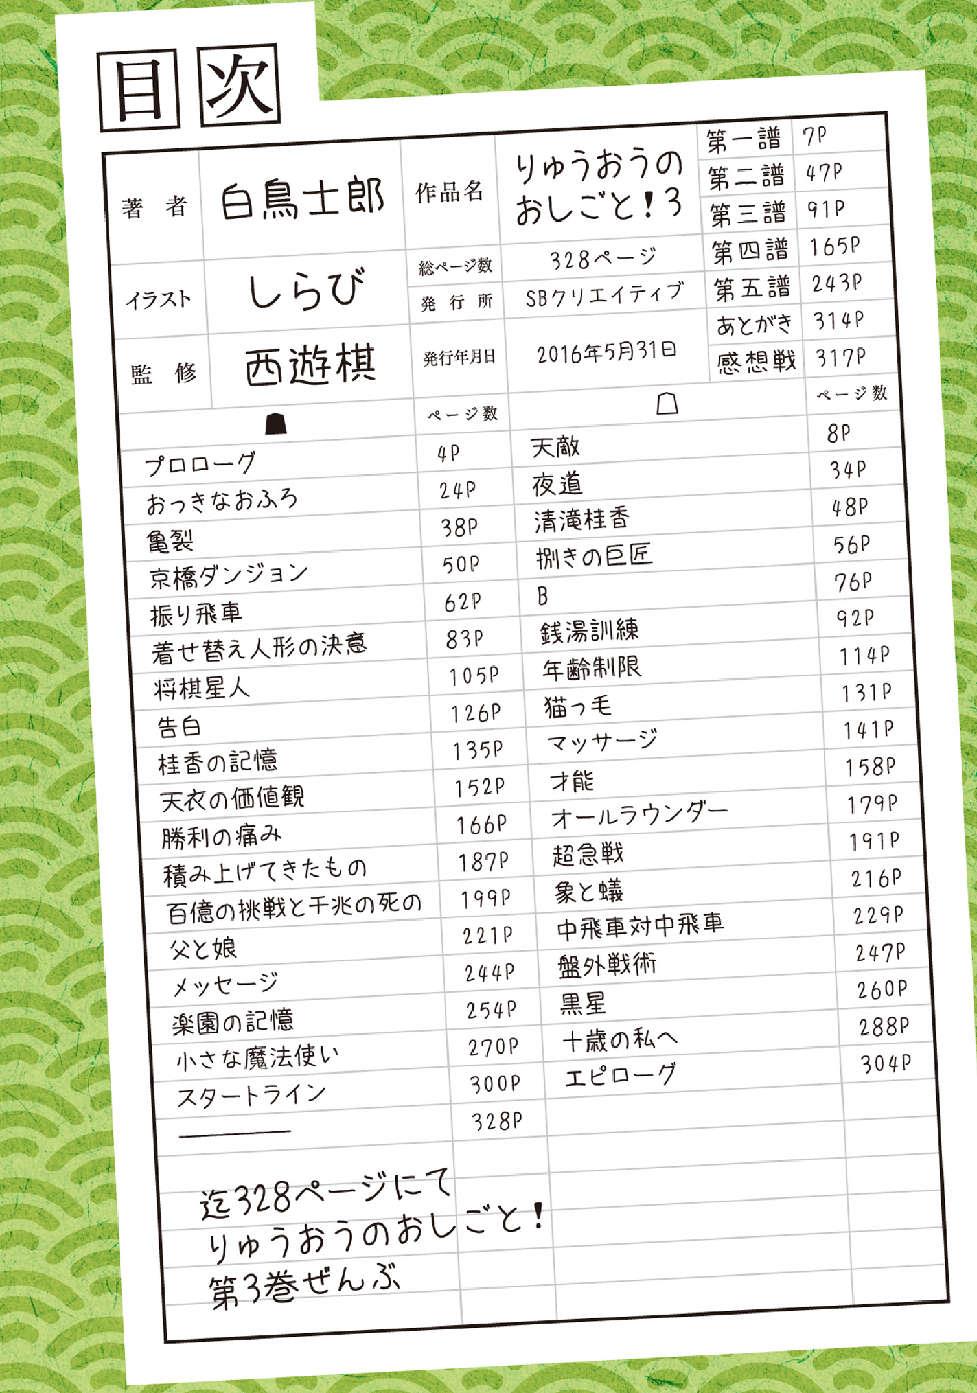 目次
著者 白鳥士郎 作品名 りゅうおうのおしごと!3
イラスト しらび 総ページ数 328ページ
発行所 SBクリエイティブ
監修 西遊棋 発行年月日 2016年5月31日
第一譜 7P
第二譜 47P
第三譜 91P
第四譜 165P
第五譜 243P
あとがき 314P
感想戦 317P
ページ数 ページ数
プロローグ 4P 天敵 8P
おっきなおふろ 24P 夜道 34P
亀裂 38P 清滝桂香 48P
京橋ダンジョン 50P 捌きの巨匠 56P
振り飛車 62P B 76P
着せ替え人形の決意 83P 銭湯訓練 92P
将棋星人 105P 年齢制限 114P
告白 126P 猫っ毛 131P
桂香の記憶 135P マッサージ 141P
天衣の価値観 152P 才能 158P
勝利の痛み 166P オールラウンダー 179P
積み上げてきたもの 187P 超急戦 191P
百億の挑戦と千兆の死の 199P 象と蟻 216P
父と娘 221P 中飛車対中飛車 229P
メッセージ 244P 盤外戦術 247P
楽園の記憶 254P 黒星 260P
小さな魔法使い 270P 十歳の私へ 288P
スタートライン 300P エピローグ 304P
――――― 328P
迄328ページにて
りゅうおうのおしごと!
第3巻ぜんぶ